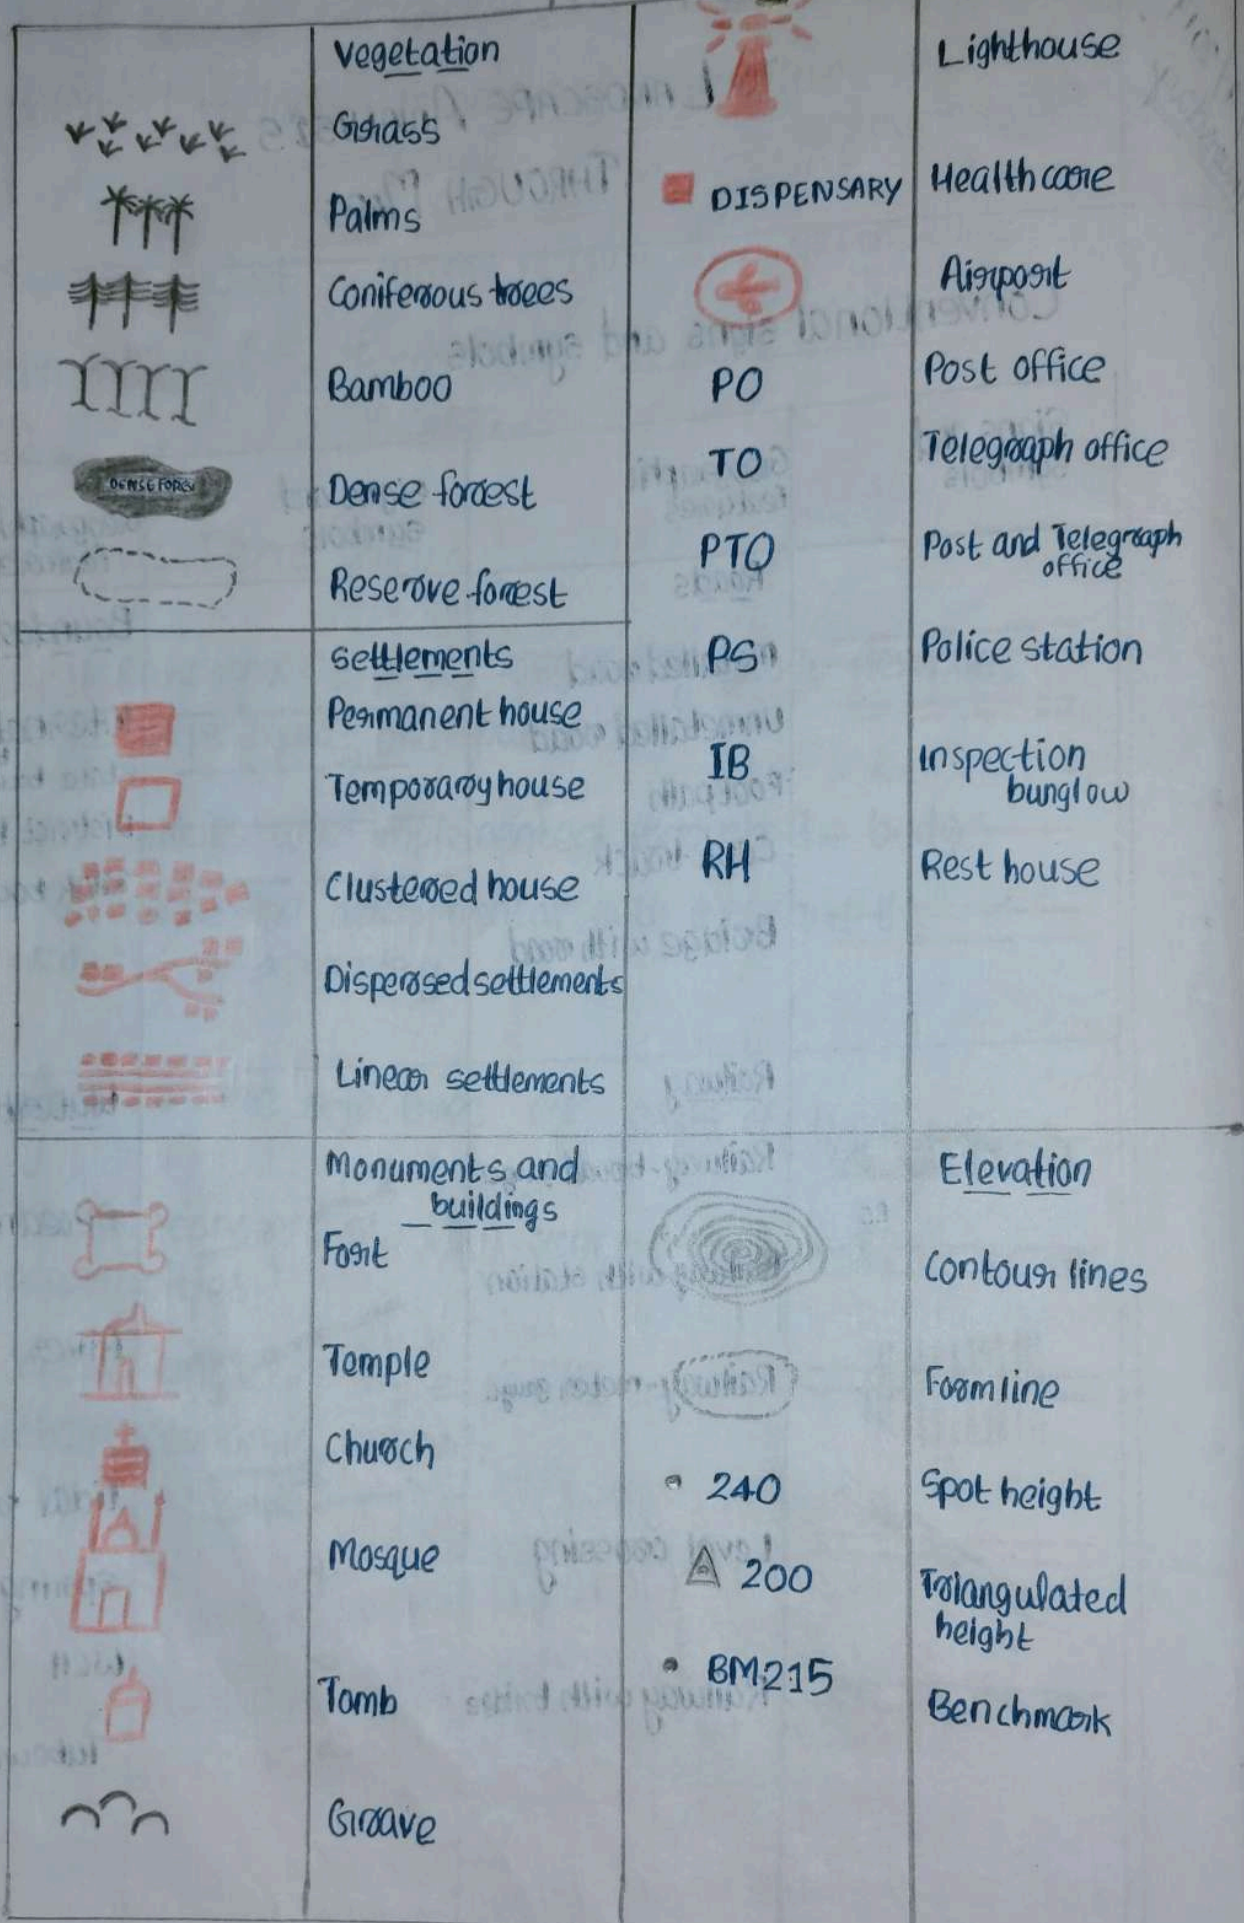 Vegetation
Grass
Palms
Coniferous trees
Bamboo
DENSE FOREST
Dense forest
Reserve forest
Settlements
Permanent house
Temporary house
Clustered house
Dispersed settlements
Linear settlements
Monuments and
buildings
Fort
Temple
Church
Mosque
Tomb
Grave
Lighthouse
DISPENSARY Healthcare
Airport
PO Post office
TO Telegraph office
PTO Post and Telegraph
office
PS Police station
IB Inspection
bunglow
RH Rest house
Elevation
Contour lines
Formline
240 Spot height
200 Triangulated
height
BM215 Benchmark